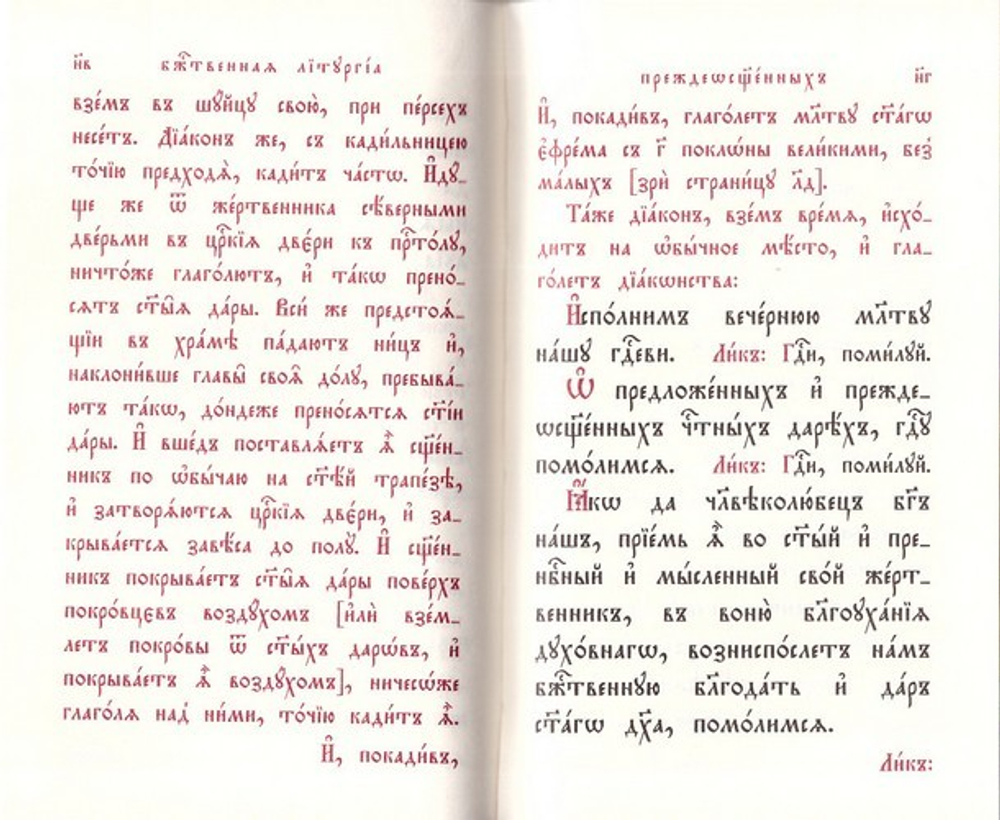 н҃в бж҃твенная лїтꙋргі́а
взе́мъ въ шꙋ́йцꙋ свою̀, при пе́рсехъ
несе́тъ. Дїа́конъ же, съ кади́льницею
то́чїю предходѧ̀, кади́тъ ча́стѡ. И҆дꙋ_
ще же ѿ же́ртвенника сѣ́верными
две́рьми въ цр҃кїѧ две́ри къ пр҃то́лꙋ,
ничто́же глаго́лютъ, и҆ та́кѡ прено́_
сѧтъ ст҃ы̑ѧ да́ры. Вси́ же предстоѧ́_
щїи въ хра́мѣ па́даютъ ни́цъ и҆,
наклони́вше главы̑ своѧ̑ до́лꙋ, пребыва́_
ютъ та́кѡ, до́ндеже прено́сѧтсѧ ст҃і́и
да́ры. И҆ вше́дъ поставлѧ́етъ ѧ҆̀ сщ҃е́н_
никъ по ѻ҆бы́чаю на ст҃ѣ́й трапе́зѣ,
и҆ затворѧ́ютсѧ цр҃кїѧ две́ри, и҆ за_
крыва́етсѧ завѣ́са до полꙋ̀. И҆ сщ҃е́н_
никъ покрыва́етъ ст҃ы̑ѧ да́ры пове́рхъ
покро́вцєвъ воздꙋ́хомъ [и҆лѝ взе́м_
летъ покро́вы ѿ ст҃ы́хъ дарѡ́въ, и҆
покрыва́етъ ѧ҆̀ воздꙋ́хомъ], ничесѡ́же
глаго́лѧ над̾ ни́ми, то́чїю кади́тъ ѧ҆̀.
И҆, покади́въ,
преждеѡсщ҃е́нныхъ н҃г
И҆, покади́въ, глаго́летъ мл҃твꙋ ст҃а́гѡ
є҆фре́ма съ г҃ поклѡ́ны вели́кими, без̾
ма́лыхъ [зрѝ страни́цꙋ л҃д].
Та́же дїа́конъ, взе́мъ вре́мѧ, и҆схо́_
дитъ на ѡ҆бы́чное мѣ́сто, и҆ гла_
го́летъ дїа́кѡнства:
И҆спо́лнимъ вече́рнюю мл҃твꙋ
на́шꙋ гд҃еви. Ли́къ: Гд҃и, поми́лꙋй.
Ѡ҆ предложе́нныхъ и҆ прежде_
ѡсщ҃е́нныхъ чⷭ҇тны́хъ дарѣ́хъ, гд҃ꙋ
помо́лимсѧ. Ли́къ: Гд҃и, поми́лꙋй.
Ꙗ҆́кѡ да чл҃вѣколю́бецъ бг҃ъ
на́шъ, прїе́мь ѧ҆̀ во ст҃ы́й и҆ пре_
нб҃ный и҆ мы́сленный сво́й же́рт_
венникъ, въ воню̀ бл҃гоꙋха́нїѧ
дꙋхо́внагѡ, возниспо́слетъ на́мъ
бж҃твеннꙋю бл҃года́ть и҆ да́ръ
ст҃а́гѡ дх҃а, помо́лимсѧ.
Ли́къ: